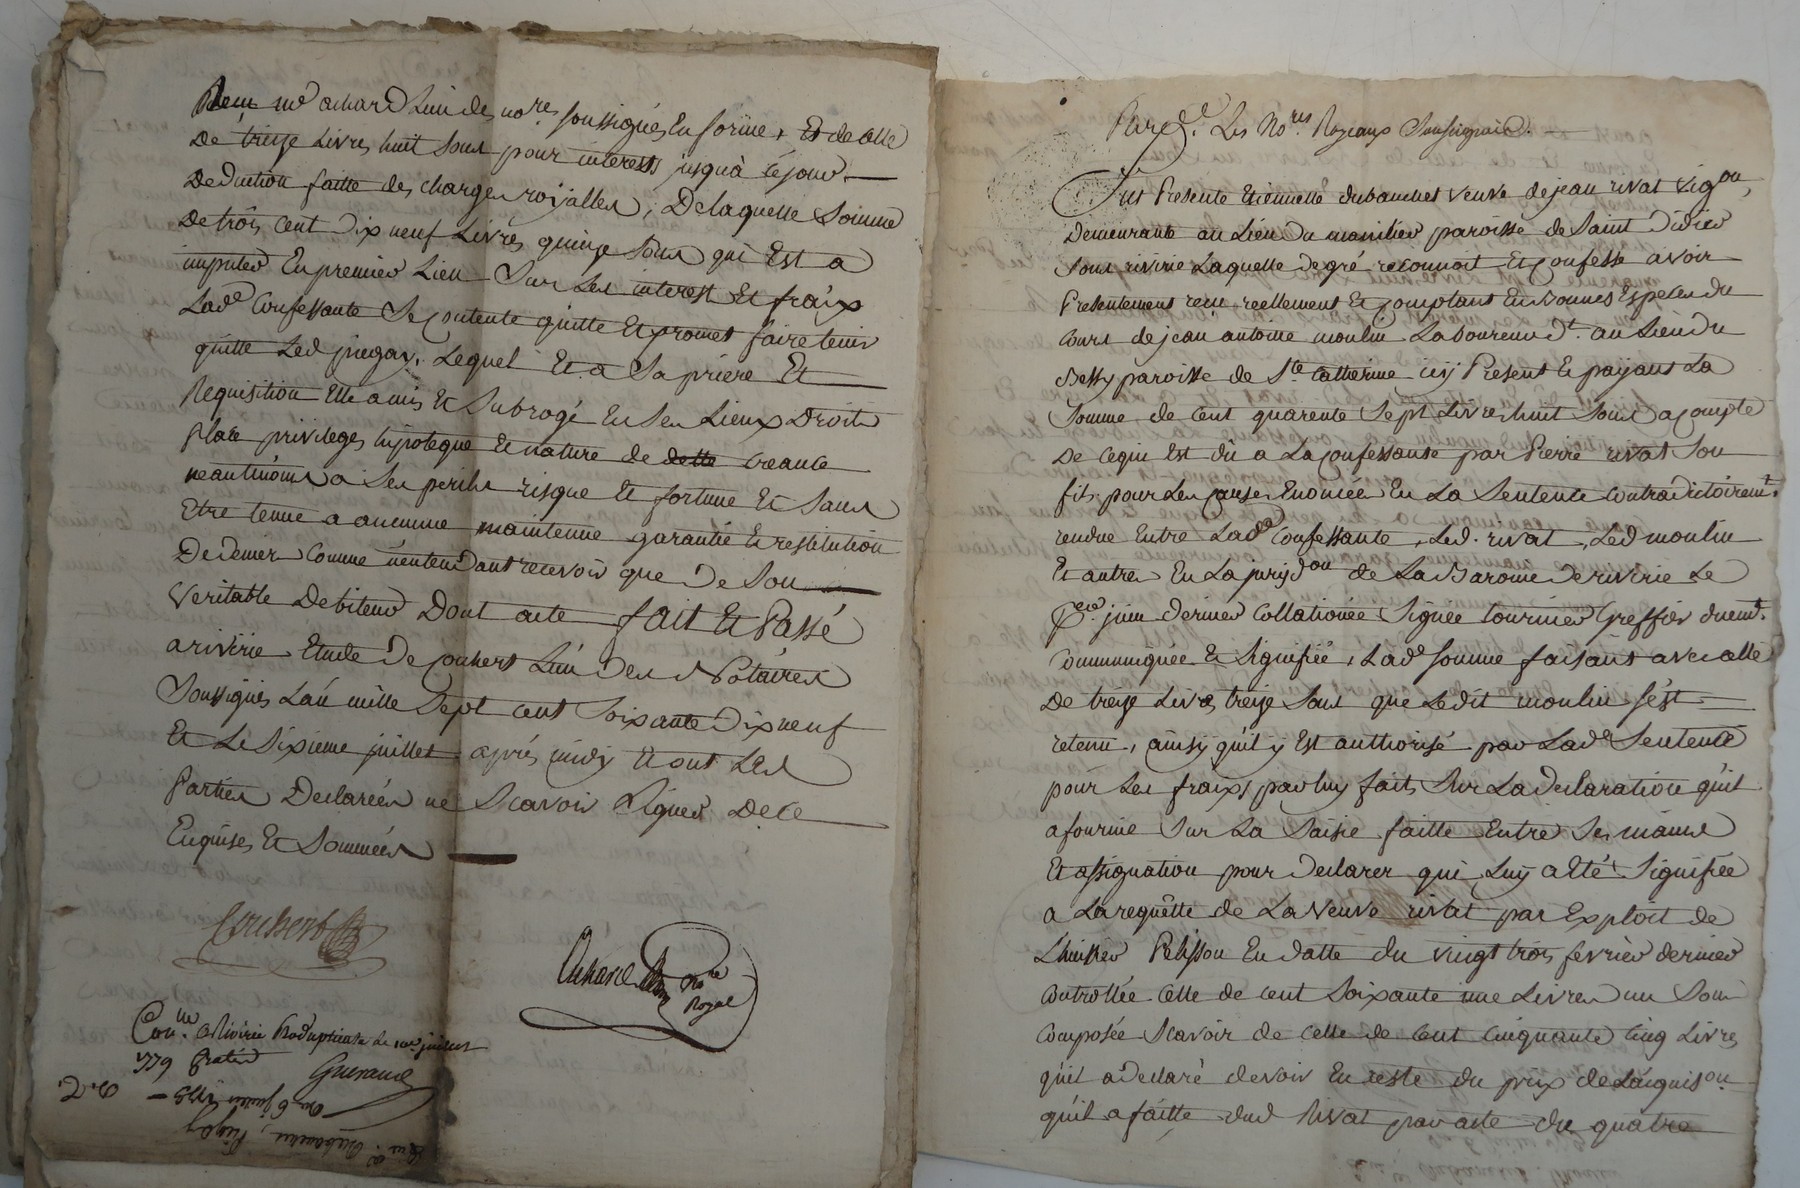 Reçu me achard L'un des nores soussignés En forme, Et de celle
De treize Livres huit sous pour interests jusqu'à cejour
Deduction faitte des charges royalles, De laquelle Somme
De trois Cent Dix neuf Livres quinze Sous qui Est a
imputer En premier Lieu Sur Les interest Et fraix
Lade Confessante Se Contente quitte Et promet faire tenir
quitte Led pingay. Lequel Et a Sa priere Et
Requisition Elle a mis Et Subrogé En Ses Lieux Droits
place privileges hypoteque Et nature de dette creance
neantmoins a Ses perils risque Et fortune Et Sans
Etre tenue a aucunne maintenue garantie Et restitution
De denier Comme n'entendant recevoir que De Son
Veritable Debiteur Dont acte fait Et Passé
a riverie Etude De Conhert L'un Des Notaires
Soussignés L'an mille Sept cent Soixante Dix neuf
Et Le Sixieme juillet après midy Et ont Led
Parties Declarées ne Scavoir Signer De Ce
Enquises Et Sommées
Achard
nore
Royal
1779
Gueraud
Pardt Les Nores Royaux Soussignés.
Fut Presente Etiennette dubanchet veuve de jean rivat vigon,
Demeurante au Lieu Du monilier paroisse de Saint Didier
Sous riverie Laquelle de gré reconnoit Et Confesse avoir
Presentement reçu reellement Et Comptant En Bonnes Especes du
Cours de jean antoine moulin Laboureur dt. au Lieu du
Bessy paroisse de Ste Catherine icy Present Et payant La
Somme de Cent quarente Sept Livres huit Sous a Compte
De Ce qui Est dû a La Confessante par Pierre rivat Son
fils pour Les Causes Enoncées En La Sentence Contradictoiremt.
rendue Entre Lade Confessante, Led. rivat, Led moulin
Et autres En La jurisdon de La Baronie De riverie Le
per. juin dernier Collationnée Signée tournier Greffier duemt.
Communiquée Et Signifiée, Lade Somme faisant avec celle
De treize Livres treize Sous que Ledit moulin S'est
retenu, ainsy qu'il y Est authorisé par Lade Sentence
pour Les fraix par luy faits Sur La declaration qu'il
a fournie Sur La Saisie faitte Entre Ses mains
Et assignation pour declarer qui Luy a Eté Signifiée
a La requêtte de La veuve rivat par Exploit de
L'huissier Pelisson En datte du vingt trois fevrier dernier
Controllée Celle de Cent Soixante une Livres un Sou
Composée Scavoir de celle de Cent Cinquante Cinq Livres
qu'il a declaré devoir En reste du prix de L'acquison.
qu'il a faitte dud Rivat par acte du quatre